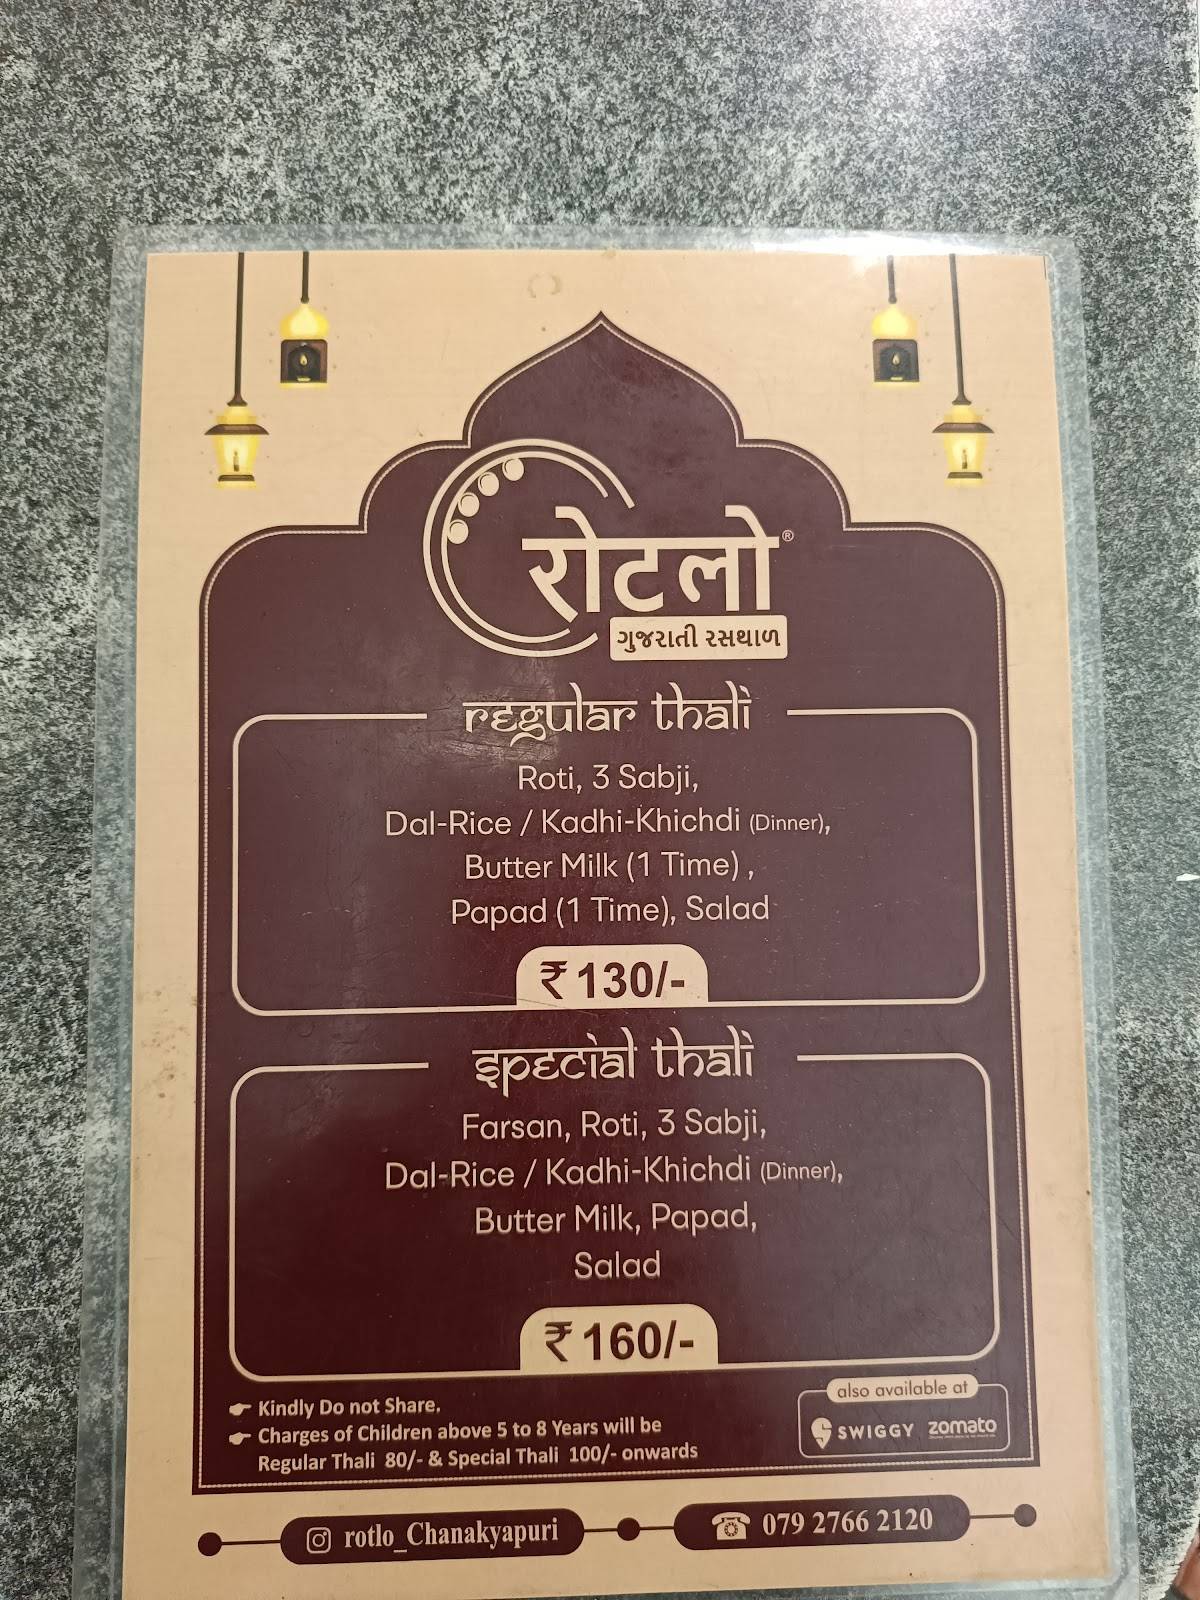 રોટલો®
ગુજરાતી રસથાળ
Regular Thali
Roti, 3 Sabji,
Dal-Rice / Kadhi-Khichdi (Dinner),
Butter Milk (1 Time) ,
Papad (1 Time), Salad
₹ 130/-
Special Thali
Farsan, Roti, 3 Sabji,
Dal-Rice / Kadhi-Khichdi (Dinner),
Butter Milk, Papad,
Salad
₹ 160/-
Kindly Do not Share.
Charges of Children above 5 to 8 Years will be
Regular Thali 80/- & Special Thali 100/- onwards
also available at
SWIGGY zomato
rotlo_Chanakyapuri
079 2766 2120